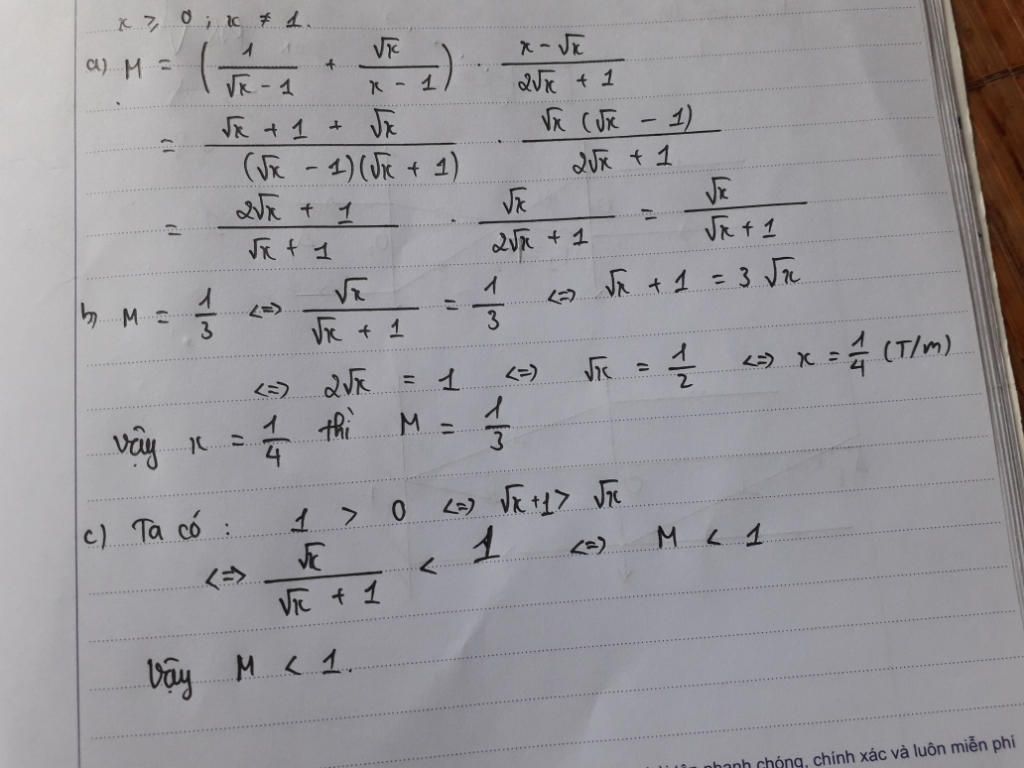 x ≥ 0 ; x ≠ 1.
a) M = ( 1/(√x - 1) + √x/(x - 1) ) . (x - √x)/(2√x + 1)
= (√x + 1 + √x)/((√x - 1)(√x + 1)) . (√x (√x - 1))/(2√x + 1)
= (2√x + 1)/(√x + 1) . √x/(2√x + 1) = √x/(√x + 1)
b) M = 1/3 <=> √x/(√x + 1) = 1/3 <=> √x + 1 = 3√x
<=> 2√x = 1 <=> √x = 1/2 <=> x = 1/4 (T/m)
Vậy x = 1/4 thì M = 1/3
c) Ta có : 1 > 0 <=> √x+1 > √x
<=> √x/(√x + 1) < 1 <=> M < 1
Vậy M < 1.
nhanh chóng, chính xác và luôn miễn phí